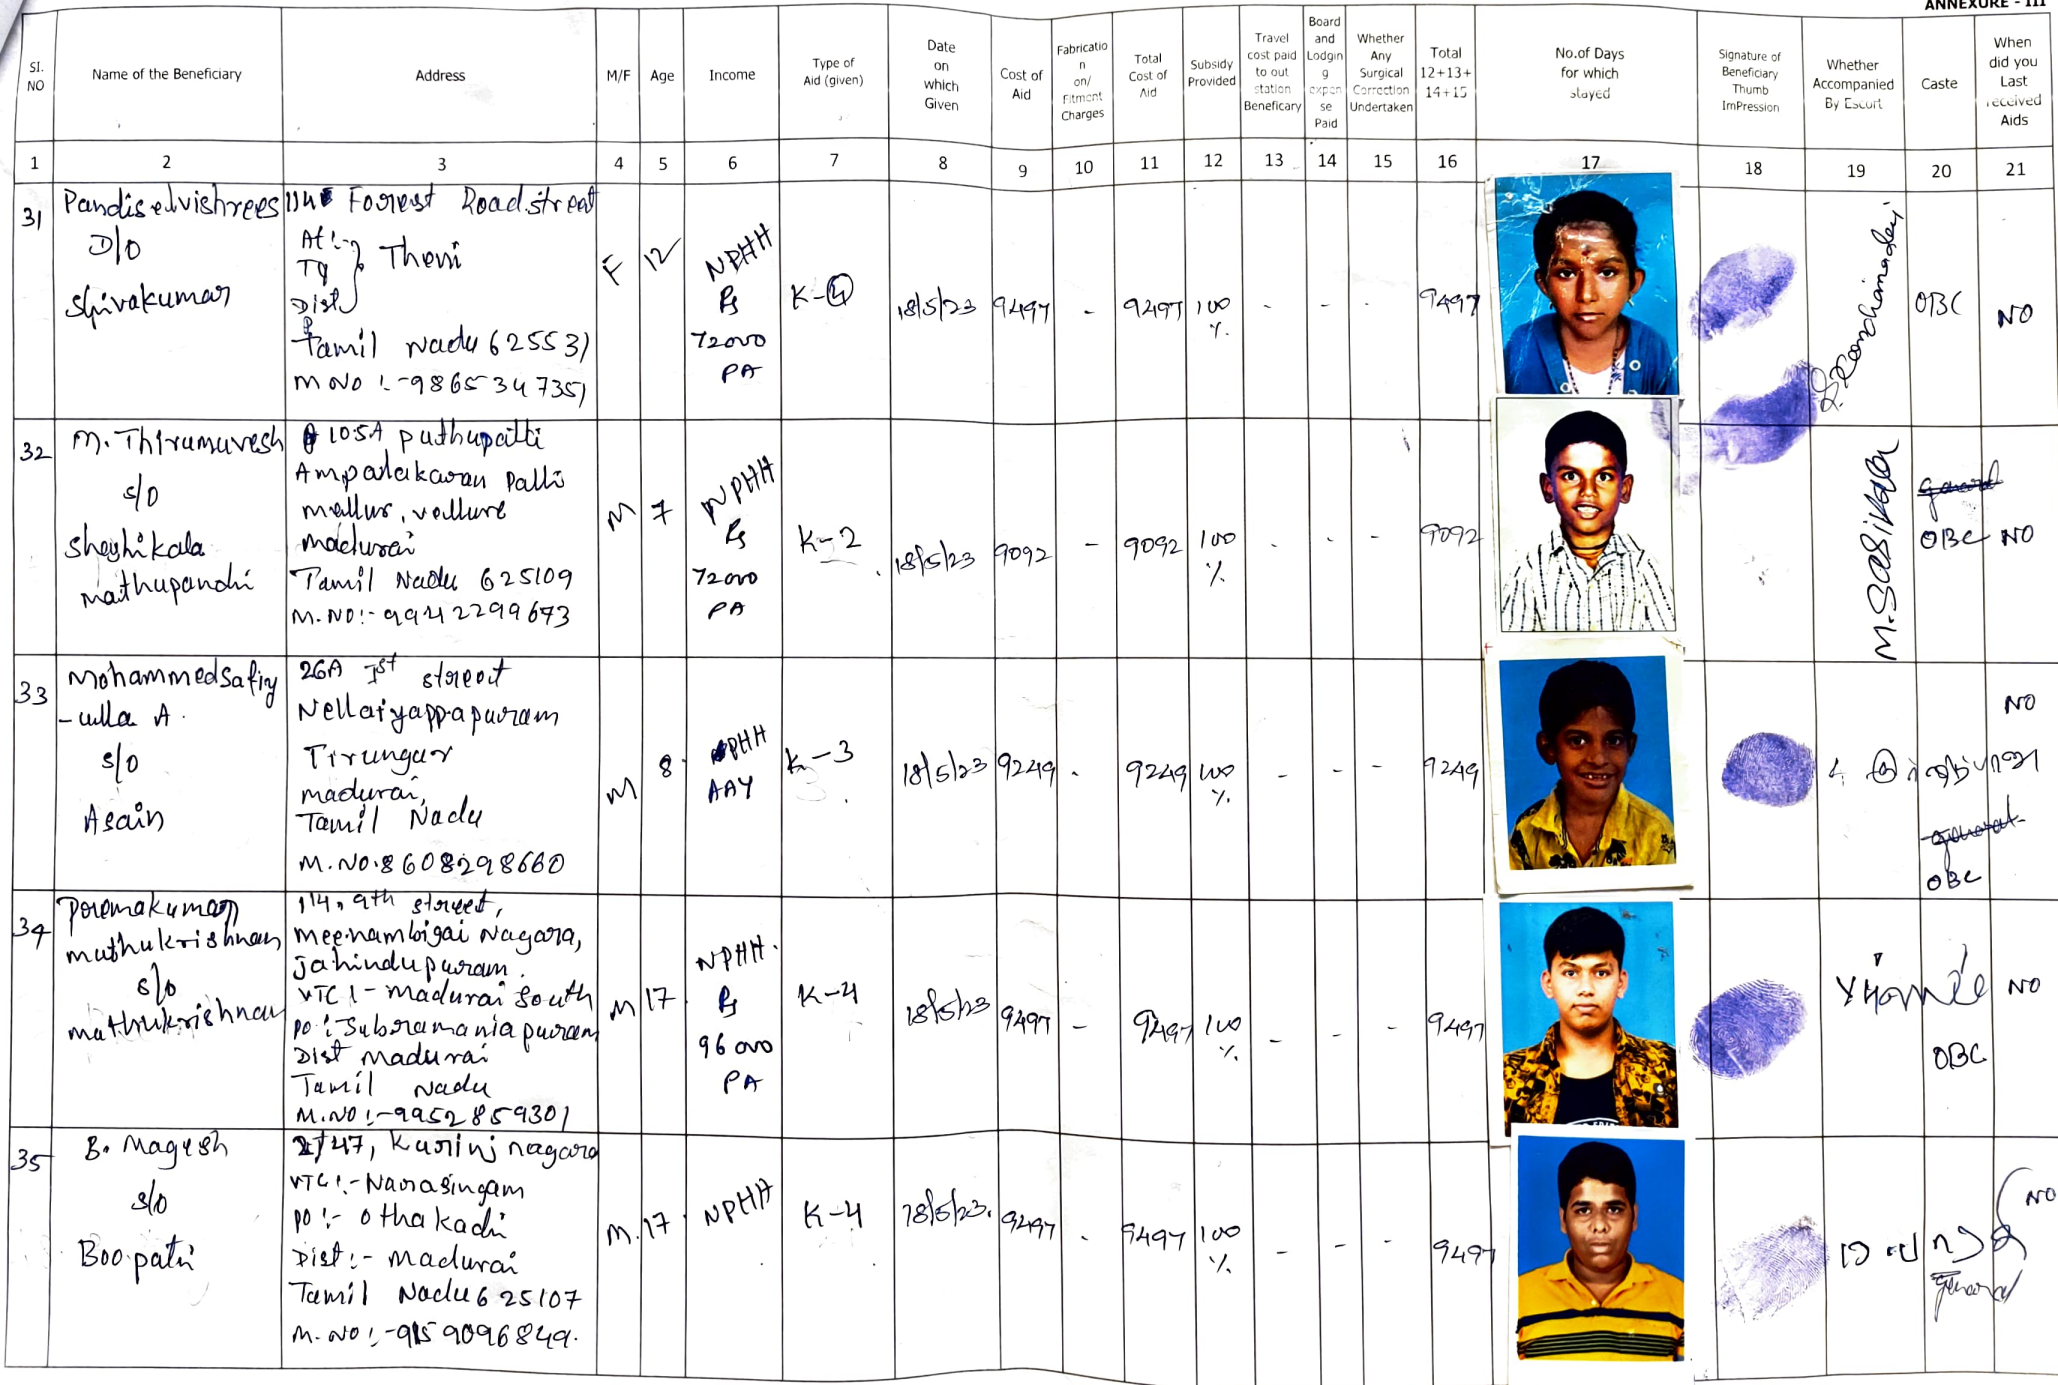 ANNEXURE - III
SI. NO
Name of the Beneficiary
Address
M/F
Age
Income
Type of Aid (given)
Date on which Given
Cost of Aid
Fabrication on/ Fitment Charges
Total Cost of Aid
Subsidy Provided
Travel cost paid to out station Beneficary
Board and Lodging expense Paid
Whether Any Surgical Correction Undertaken
Total 12+13+ 14+15
No.of Days for which stayed
Signature of Beneficiary Thumb ImPression
Whether Accompanied By Escurt
Caste
When did you Last received Aids
1 2 3 4 5 6 7 8 9 10 11 12 13 14 15 16 17 18 19 20 21
31
Pandiselvishrees
D/O
Shivakumar
114 Forest Road street
At:-
TQ
Dist
Theni
Tamil Nadu 625531
M NO :- 9865347351
F
12
NPHH
Rs
72000
PA
K-4
18/5/23
9497
-
9497
100
%
-
-
-
9497
OBC
NO
32
M. Thirumuvesh
s/o
Sheshikala
Muthupandi
105A puthupatti
Ampalakaran Palli
mellur, vellure
madurai
Tamil Nadu 625109
M.NO:- 9942299673
M
7
NPHH
Rs
72000
PA
K-2
18/5/23
9092
-
9092
100
%
-
-
-
9092
M. Sasikala
OBC
NO
33
MohammedSafiy
-ulla A.
s/o
Asain
26A Ist street
Nellaiyappapuram
Tirungar
madurai,
Tamil Nadu
M.NO.8608298660
M
8
NPHH
AAY
K-3
18/5/23
9249
-
9249
100
%
-
-
-
9249
OBC
NO
34
Premakumar
muthukrishnan
s/o
muthukrishnan
114, 9th street,
meenambigai Nagara,
jahindupuram.
VTC :- Madurai South
PO :- Subramaniapuram
Dist Madurai
Tamil Nadu
M.NO :- 9952859301
M
17
NPHH.
Rs
96000
PA
K-4
18/5/23
9497
-
9497
100
%
-
-
-
9497
OBC
NO
35
B. Magesh
s/o
Boopathi
2/47, Kurinj nagara
VTC :- Narasingam
PO :- Othakadi
Dist :- Madurai
Tamil Nadu 625107
M. NO :- 9159096849.
M.
17
NPHH
K-4
18/5/23.
9497
-
9497
100
%
-
-
-
9497
General
NO